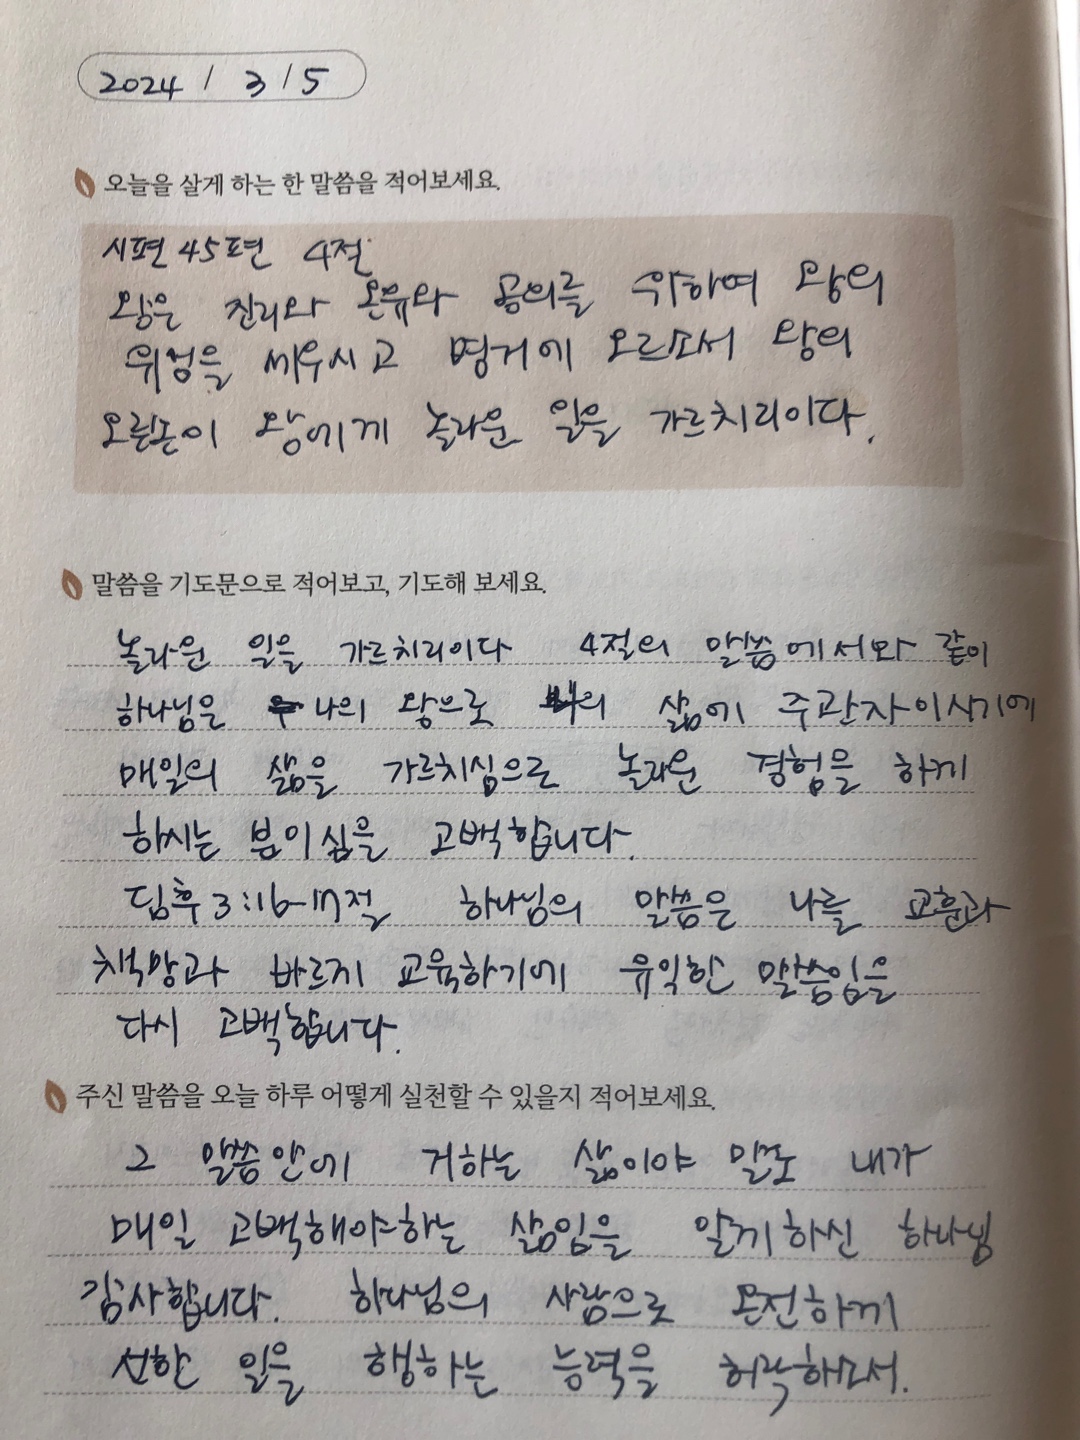 2024 / 3 / 5
오늘을 살게 하는 한 말씀을 적어보세요.
시편 45편 4절
왕은 진리와 온유와 공의를 위하여 왕의
위엄을 세우시고 병거에 오르소서 왕의
오른손이 왕에게 놀라운 일을 가르치리이다.
말씀을 기도문으로 적어보고, 기도해 보세요.
놀라운 일을 가르치리이다 4절의 말씀에서와 같이
하나님은 나의 왕으로 나의 삶에 주관자이시기에
매일의 삶을 가르치심으로 놀라운 경험을 하게
하시는 분이심을 고백합니다.
딤후 3:16-17절 하나님의 말씀은 나를 교훈과
책망과 바르게 교육하기에 유익한 말씀임을
다시 고백합니다.
주신 말씀을 오늘 하루 어떻게 실천할 수 있을지 적어보세요.
그 말씀안에 거하는 삶이야 말로 내가
매일 고백해야하는 삶임을 알게하신 하나님
감사합니다. 하나님의 사람으로 온전하게
선한 일을 행하는 능력을 허락하소서.